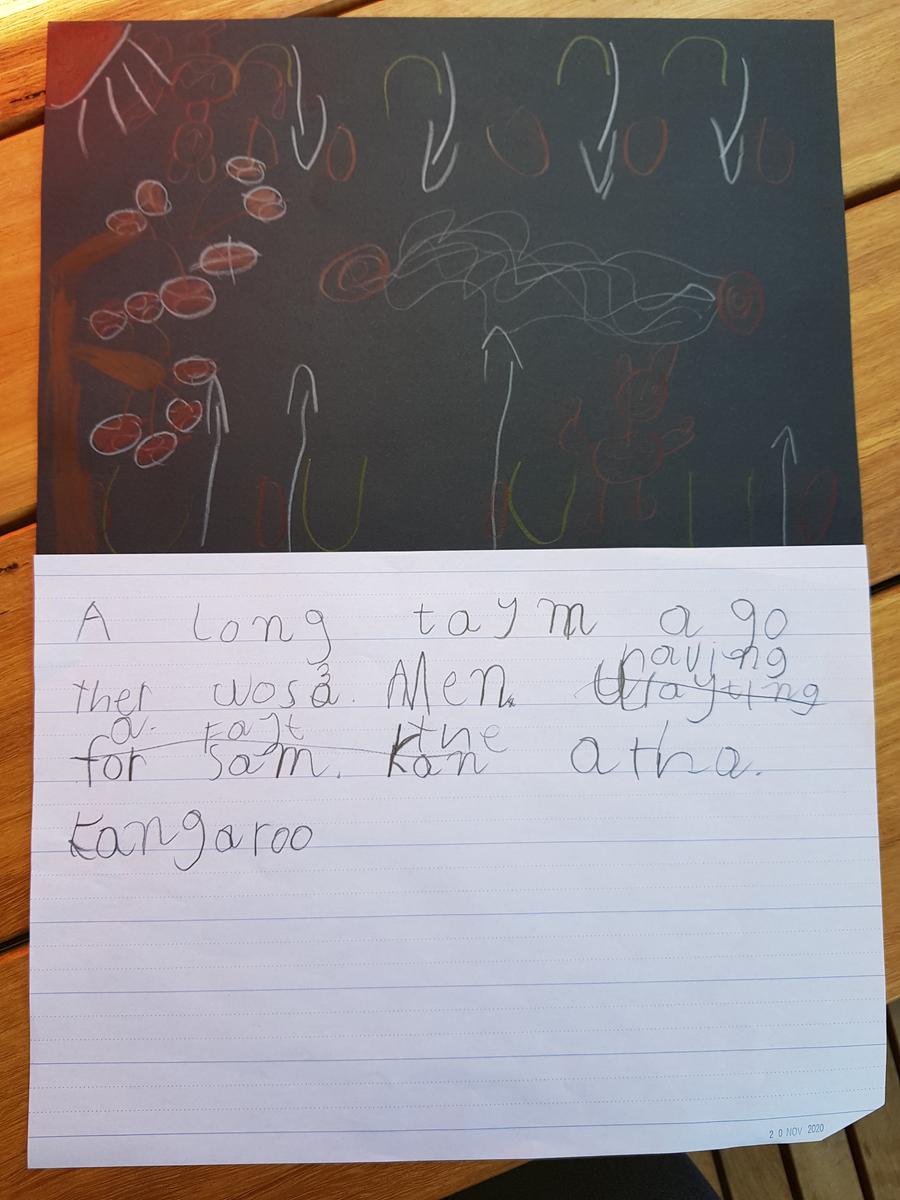 A long taym a go
having
ther wos a. Men.
a. fayt the
for sam. kan atha.
kangaroo
20 NOV 2020